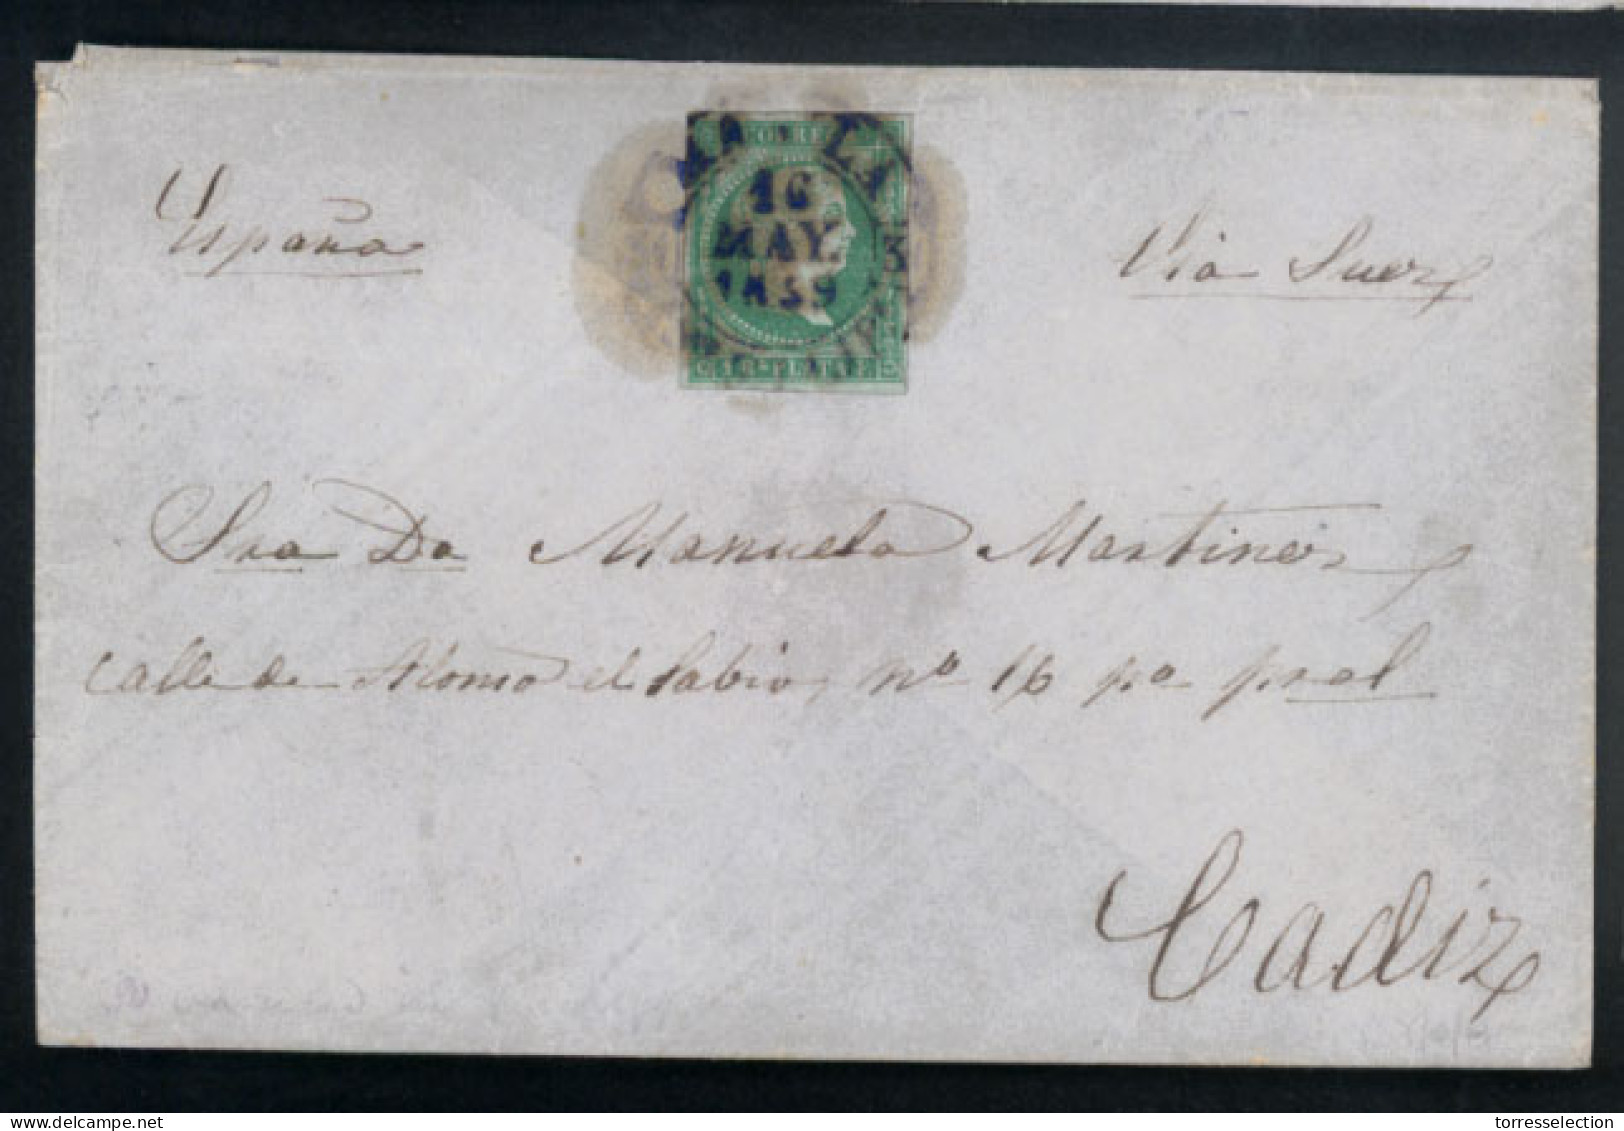 España
Via Suez
MANILA
16
MAY.
1859
Sra Da Manuela Martinez
calle de Alonso el Sabio, nº 16 po pral
Cadiz
torresselection